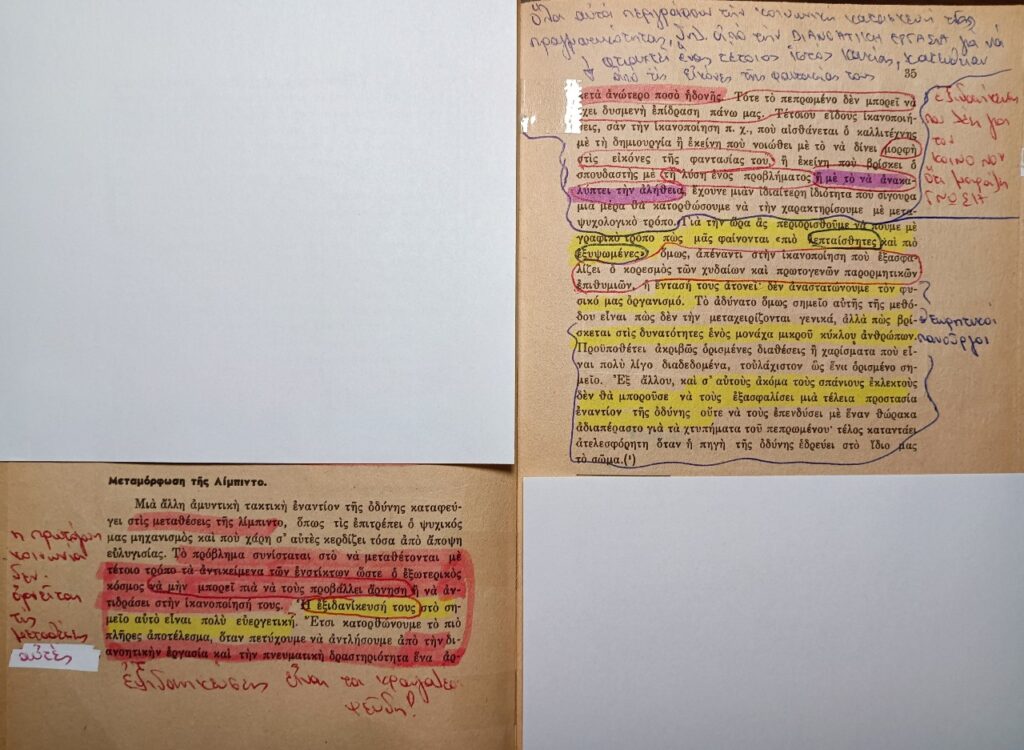 Ὅλοι αὐτοί περιγράφουν τὴν κοινωνικὴ κατασκευὴ τῆς
πραγματικότητας, δηλ. ἀπό τὴν ΔΙΑΝΟΗΤΙΚΗ ΕΡΓΑΣΙΑ γιὰ νά
φτιαχτεῖ ἕνας τέτοιος ἱστός κατευθεῖαν
ἀπό τὶς εἰκόνες τῆς φαντασίας τους
35
κετὰ ἀνώτερο ποσὸ ἡδονῆς. Τότε τὸ πεπρωμένο δὲν μπορεῖ νὰ
ἔχει δυσμενὴ ἐπίδραση πάνω μας. Τέτοιου εἴδους ἱκανοποιή-
σεις, σὰν τὴν ἱκανοποίηση π. χ., ποὺ αἰσθάνεται ὁ καλλιτέχνης
μὲ τὴ δημιουργία ἢ ἐκείνη ποὺ νοιώθει μὲ τὸ νὰ δίνει μορφὴ
στὶς εἰκόνες τῆς φαντασίας του, ἢ ἐκείνη ποὺ βρίσκει ὁ
σπουδαστὴς μὲ τὴ λύση ἑνὸς προβλήματος ἢ μὲ τὸ νὰ ἀνακα-
λύπτει τὴν ἀλήθεια, ἔχουνε μιὰν ἰδιαίτερη ἰδιότητα ποὺ σίγουρα
μιὰ μέρα θὰ κατορθώσουμε νὰ τὴν χαρακτηρίσουμε μὲ μετα-
ψυχολογικὸ τρόπο. Γιὰ τὴν ὥρα ἂς περιορισθοῦμε νὰ ποῦμε μὲ
γραφικὸ τρόπο πὼς μᾶς φαίνονται «πιὸ λεπταίσθητες καὶ πιὸ
ἐξυψωμένες» ὅμως, ἀπέναντι στὴν ἱκανοποίηση ποὺ ἐξασφα-
λίζει ὁ κορεσμὸς τῶν χυδαίων καὶ πρωτογενῶν παρορμητικῶν
ἐπιθυμιῶν, ἡ ἔντασή τους ἀτονεῖ· δὲν ἀναστατώνουμε τὸν φυ-
σικό μας ὀργανισμό. Τὸ ἀδύνατο ὅμως σημεῖο αὐτῆς τῆς μεθό-
δου εἶναι πὼς δὲν τὴν μεταχειρίζονται γενικά, ἀλλὰ πὼς βρί-
σκεται στὶς δυνατότητες ἑνὸς μονάχα μικροῦ κύκλου ἀνθρώπων.
Προϋποθέτει ἀκριβῶς ὁρισμένες διαθέσεις ἢ χαρίσματα ποὺ εἶ-
ναι πολὺ λίγο διαδεδομένα, τοὐλάχιστον ὣς ἕνα ὁρισμένο ση-
μεῖο. Ἐξ ἄλλου, καὶ σ' αὐτοὺς ἀκόμα τοὺς σπάνιους ἐκλεκτοὺς
δὲν θὰ μποροῦσε νὰ τοὺς ἐξασφαλίσει μιὰ τέλεια προστασία
ἐναντίον τῆς ὀδύνης οὔτε νὰ τοὺς ἐπενδύσει μὲ ἕναν θώρακα
ἀδιαπέραστο γιὰ τὰ χτυπήματα τοῦ πεπρωμένου· τέλος καταντάει
ἀτελεσφόρητη ὅταν ἡ πηγὴ τῆς ὀδύνης ἑδρεύει στὸ ἴδιο μας
τὸ σῶμα.(¹)
ἐξιδανίκευσης
τον
κοινό νου
ΓΝΩΣΙΑ
πανοῦργοι
Μεταμόρφωση τῆς Λίμπιντο.
Μιὰ ἄλλη ἀμυντικὴ τακτικὴ ἐναντίον τῆς ὀδύνης καταφεύ-
γει στὶς μεταθέσεις τῆς λίμπιντο, ὅπως τὶς ἐπιτρέπει ὁ ψυχικός
μας μηχανισμὸς καὶ ποὺ χάρη σ' αὐτὲς κερδίζει τόσα ἀπὸ ἄποψη
εὐλυγισίας. Τὸ πρόβλημα συνίσταται στὸ νὰ μεταθέτονται μὲ
τέτοιο τρόπο τὰ ἀντικείμενα τῶν ἐνστίκτων ὥστε ὁ ἐξωτερικὸς
κόσμος νὰ μὴν μπορεῖ πιὰ νὰ τοὺς προβάλλει ἄρνηση ἢ νὰ ἀν-
τιδράσει στὴν ἱκανοποίησή τους. Ἡ ἐξιδανίκευσή τους στὸ ση-
μεῖο αὐτὸ εἶναι πολὺ εὐεργετική. Ἔτσι κατορθώνουμε τὸ πιὸ
πλῆρες ἀποτέλεσμα, ὅταν πετύχουμε νὰ ἀντλήσουμε ἀπὸ τὴν δι-
ανοητικὴ ἐργασία καὶ τὴν πνευματικὴ δραστηριότητα ἕνα ἀρ-
ἡ πρωτόγονη
κοινωνία
δὲν
ὁρίζεται
τὶς
μεταθέσεις
αὐτὲς
Ἐξιδανικεύσεις εἶναι τὰ κραυγαλέα
ψεύδη!